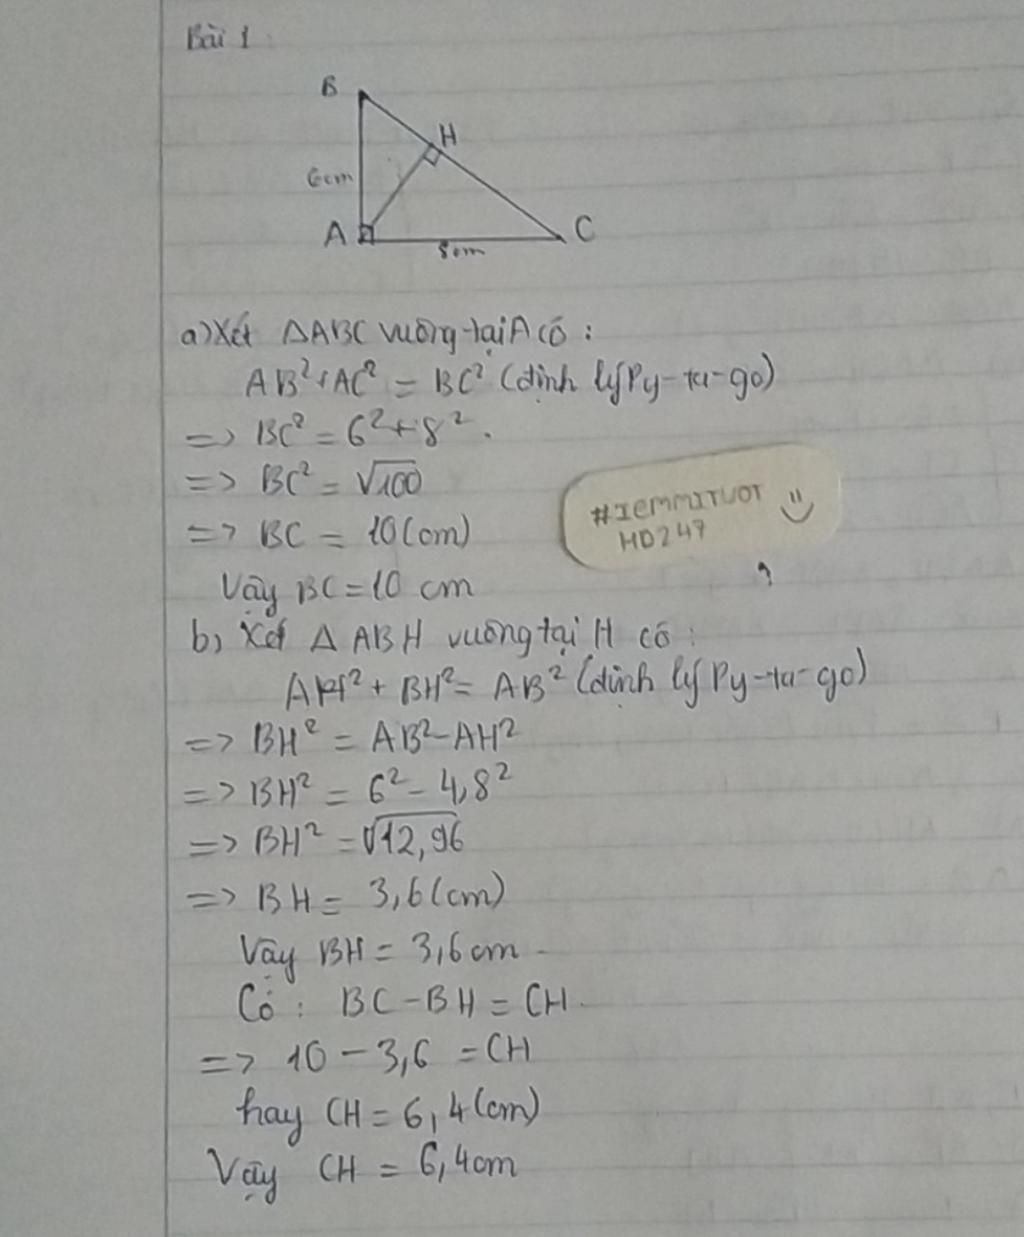 Bài 1:
B
H
6cm
A
C
8cm
a) Xét ΔABC vuông tại A có :
AB² + AC² = BC² (định lý Py-ta-go)
=> BC² = 6² + 8².
=> BC² = √100
=> BC = 10(cm)
#IEMMITUOT
HD247
Vậy BC = 10 cm
b) Xét Δ ABH vuông tại H có :
AH² + BH² = AB² (định lý Py-ta-go)
=> BH² = AB² - AH²
=> BH² = 6² - 4,8²
=> BH² = √12,96
=> BH = 3,6(cm)
Vậy BH = 3,6cm
Có : BC - BH = CH.
=> 10 - 3,6 = CH
hay CH = 6,4(cm)
Vậy CH = 6,4cm